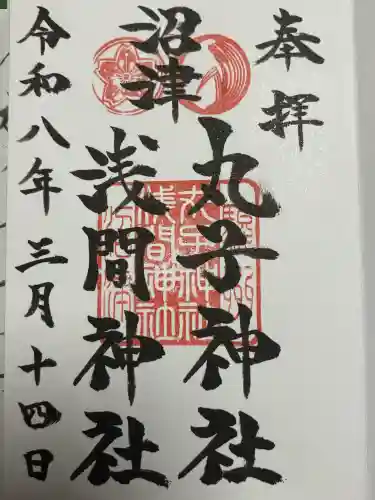 奉拝
沼津
丸子神社
浅間神社
令和八年三月十四日